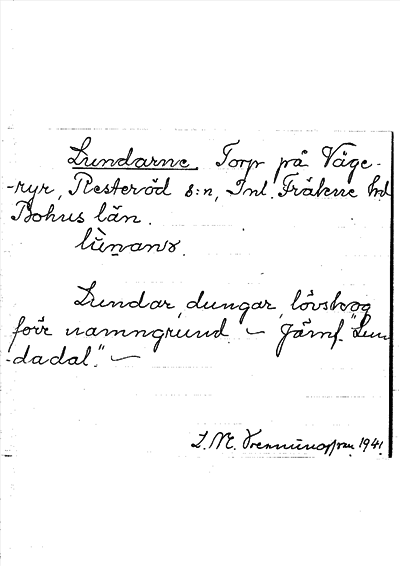 Lundarne. Torp på Väge-
-ryr, Resteröd s:n, Inl. Fräkne hd
Bohus län.
Lundar, dungar, lövskog
förr namngrund. – Jämf. "Lun
-dadal." –
1941